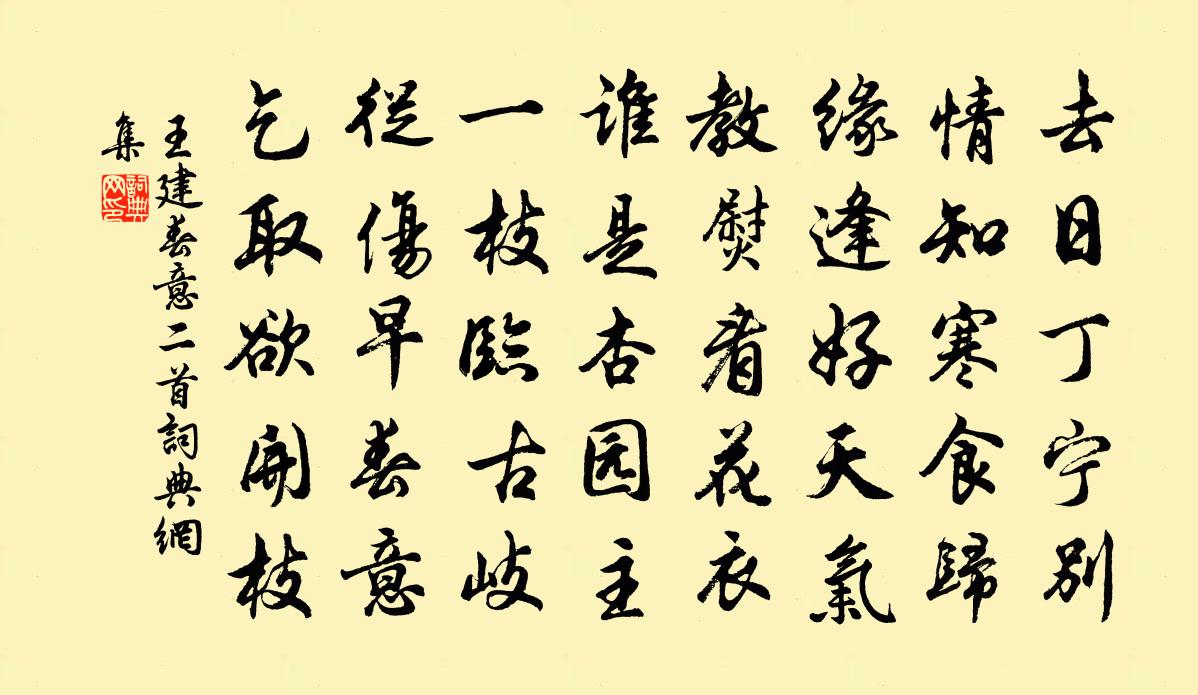 去日丁宁别
情知寒食歸
缘逢好天氣
教熨看花衣
谁是杏园主
一枝臨古岐
從傷早春意
乞取欲開枝
王建春意二首詞典網
集
詞典網印